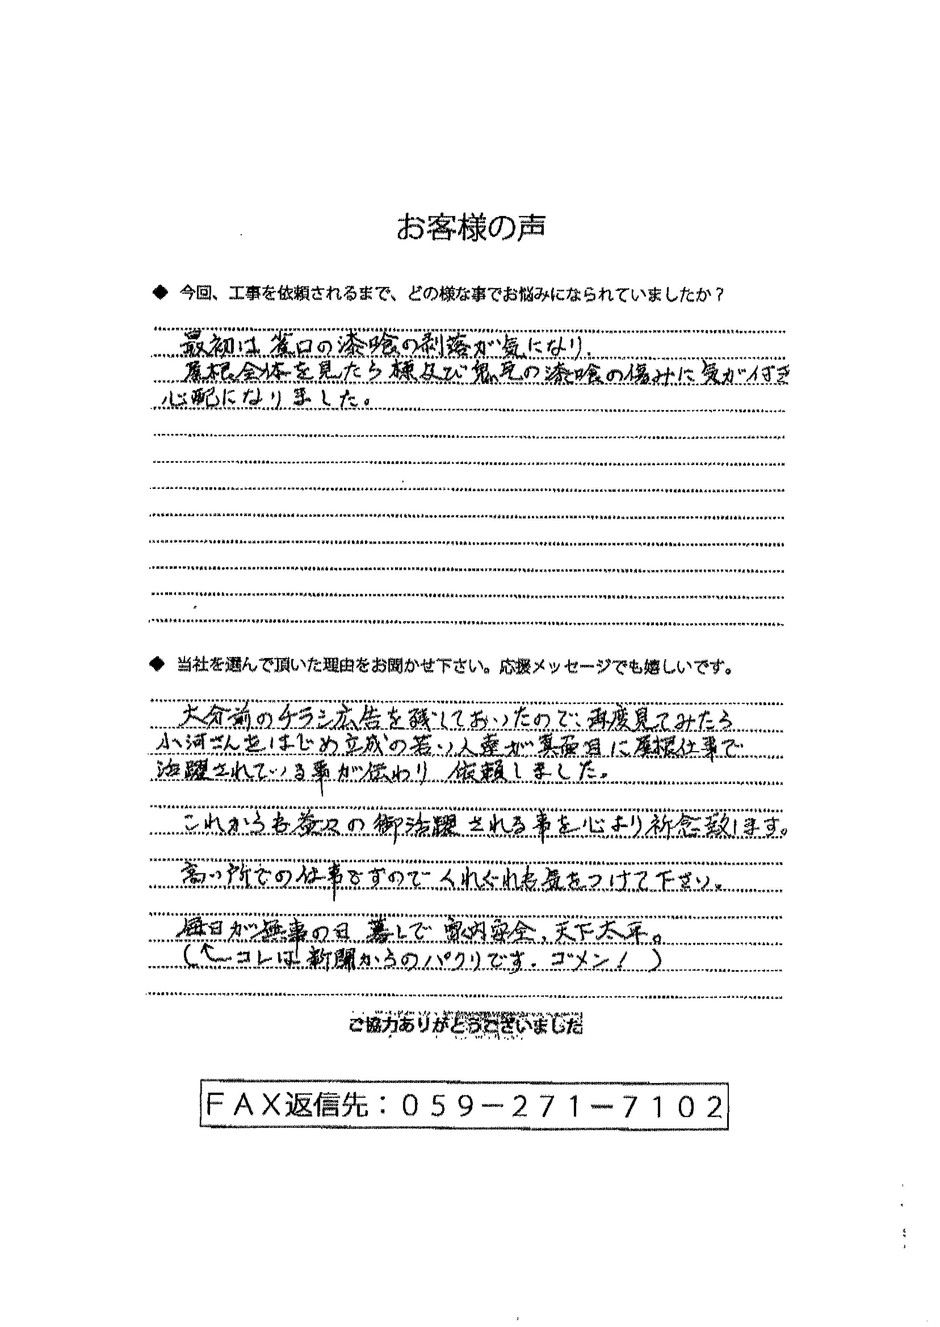 お客様の声
◆ 今回、工事を依頼されるまで、どの様な事でお悩みになられていましたか？
最初は雀口の漆喰の剥落が気になり、
屋根全体を見たら棟及び鬼瓦の漆喰の傷みに気が付き
心配になりました。
◆ 当社を選んで頂いた理由をお聞かせ下さい。応援メッセージでも嬉しいです。
大分前のチラシ広告を残しておいたので、再度見てみたら
小河さんをはじめ立成の若い人達が真面目に屋根仕事で
活躍されている事が伝わり 依頼しました。
これからも益々の御活躍される事を心より祈念致します。
高い所での仕事ですのでくれぐれも気をつけて下さい。
毎日が無事の日 暮しで 家内安全、天下太平。
(↑コレは新聞からのパクリです. ゴメン！)
ご協力ありがとうございました
ＦＡＸ返信先：０５９－２７１－７１０２